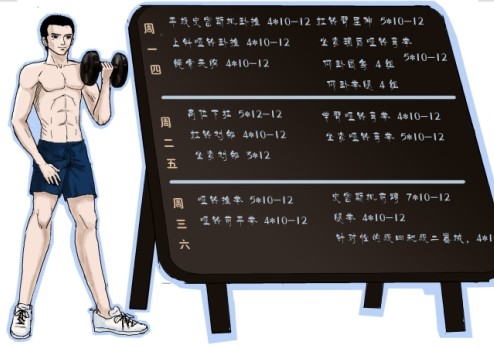 周一四
平板史密斯机卧推 4*10-12 臂屈伸 5*10-12
上斜哑铃卧推 4*10-12 坐姿 哑铃弯举 5*10-12
绳索夹胸 4*10-12 仰卧 4组
仰卧举腿 4组
周二五
高位下拉 5*12-12 单臂哑铃弯举 4*10-12
划船 4*10-12 坐姿哑铃弯举 5*10-12
坐姿划船 3*12
周三六
哑铃推举 5*10-12 史密斯机 7*10-12
哑铃 平举 4*10-12 腿举 4*10-12
针对性的股四和股二器械，4*1